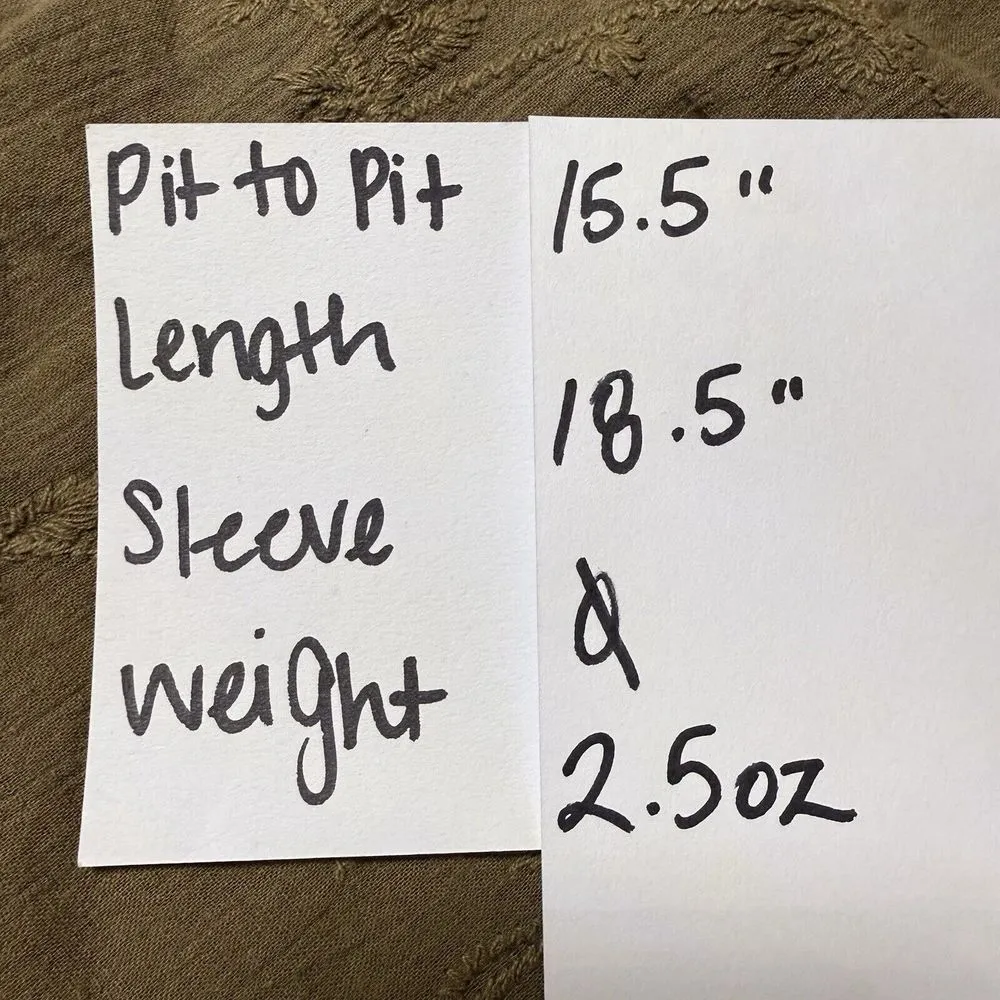 Pit to Pit 15.5"
Length 18.5"
Sleeve Ø
Weight 2.5oz